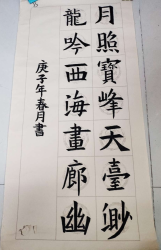 月照寶峰天臺渺
龍吟西海畫廊幽
庚子年春月書